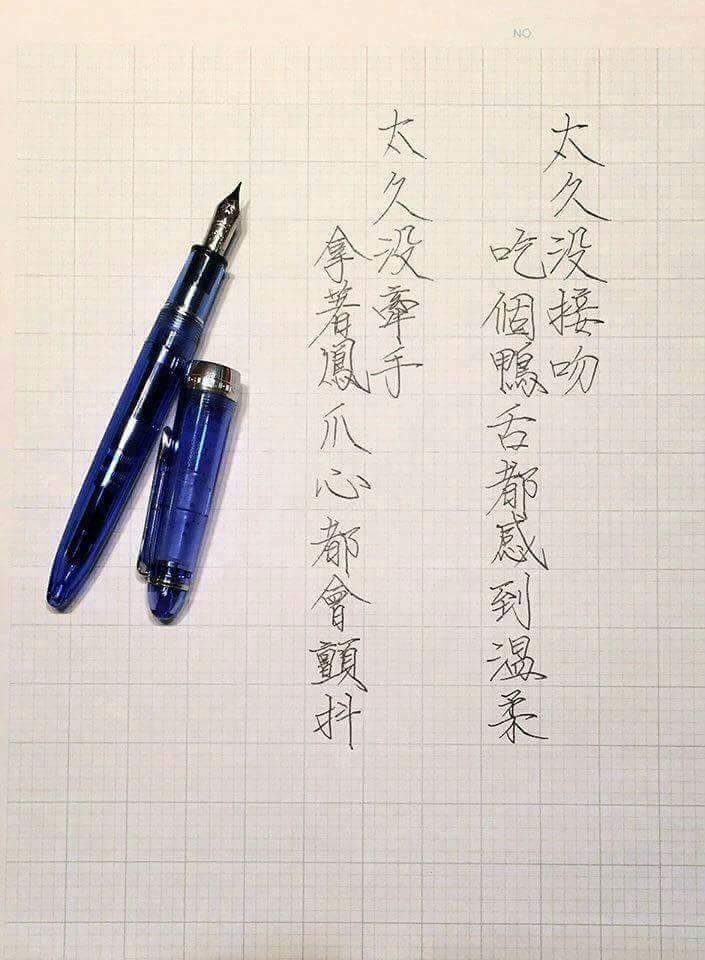 NO.
太久没接吻
吃個鴨舌都感到溫柔
太久没牽手
拿著鳳爪心都會顫抖